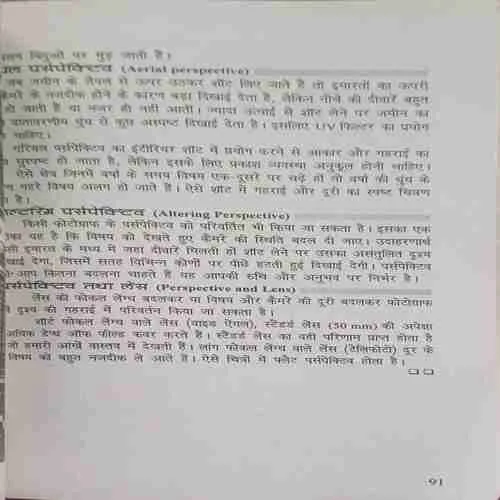 बिंदुओं पर मुड़ जाती हैं।
पर्सपेक्टिव (Aerial perspective)
जब जमीन के लेवल से ऊपर उठकर शॉट लिए जाते हैं तो इमारतों का ऊपरी
कैमरे के नजदीक होने के कारण बड़ा दिखाई देता है, लेकिन नीचे की दीवारें बहुत
हो जाती हैं या नजर ही नहीं आतीं। ज्यादा ऊंचाई से शॉट लेने पर जमीन का
वातावरणीय धुंध से कुछ अस्पष्ट दिखाई देता है। इसलिए UV फिल्टर का प्रयोग
चाहिए।
एरियल पर्सपेक्टिव का इंटीरियर शॉट में प्रयोग करने से आकार और गहराई का
सुस्पष्ट हो जाता है, लेकिन इसके लिए प्रकाश व्यवस्था अनुकूल होनी चाहिए।
ऐसे क्षेत्र जिनमें वर्षा के समय विषय एक-दूसरे पर चढ़े हों तो वर्षा की धुंध के
गहरे विषय अलग हो जाते हैं। ऐसे शॉट में गहराई और दूरी का स्पष्ट चित्रण
है।
पर्सपेक्टिव (Altering Perspective)
किसी फोटोग्राफ के पर्सपेक्टिव को परिवर्तित भी किया जा सकता है। इसका एक
यह है कि विषय को देखते हुए कैमरे की स्थिति बदल दी जाए। उदाहरणार्थ
इमारत के मध्य में जहां दीवारें मिलती हों शॉट लेने पर उसका असंतुलित दृश्य
दिखाई देगा, जिसमें सतह विभिन्न कोणों पर पीछे हटती हुई दिखाई देगी। पर्सपेक्टिव
आप कितना बदलना चाहते हैं यह आपकी रुचि और अनुभव पर निर्भर है।
पर्सपेक्टिव तथा लेंस (Perspective and Lens)
लेंस की फोकल लेंग्थ बदलकर या विषय और कैमरे की दूरी बदलकर फोटोग्राफ
दृश्य की गहराई में परिवर्तन किया जा सकता है।
शॉर्ट फोकल लेंग्थ वाले लेंस (वाइड ऐंगल), स्टैंडर्ड लेंस (50 mm) की अपेक्षा
अधिक डेप्थ ऑफ फील्ड कवर करते हैं। स्टैंडर्ड लेंस का वही परिणाम प्राप्त होता है
जो हमारी आंखें वास्तव में देखती हैं। लांग फोकल लेंग्थ वाले लेंस (टेलिफोटो) दूर के
विषय को बहुत नजदीक ले आते हैं। ऐसे चित्रों में फ्लैट पर्सपेक्टिव होता है।
91